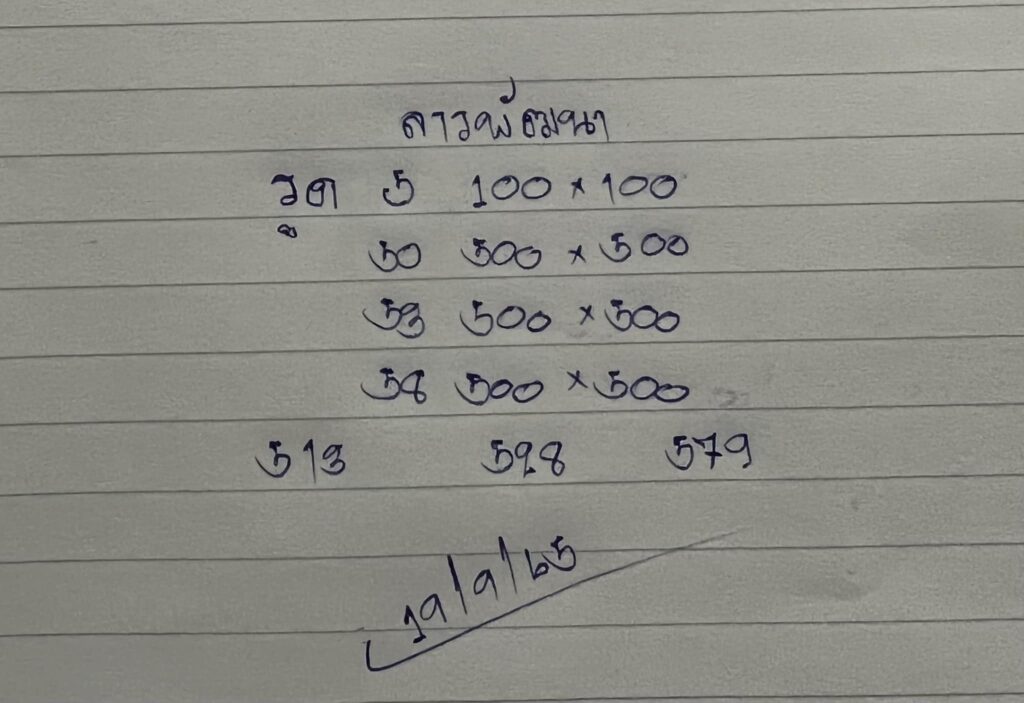 ลาวพัฒนา
รูด 5 100 × 100
50 500 × 500
53 500 × 500
58 500 × 500
513 528 579
19/9/65